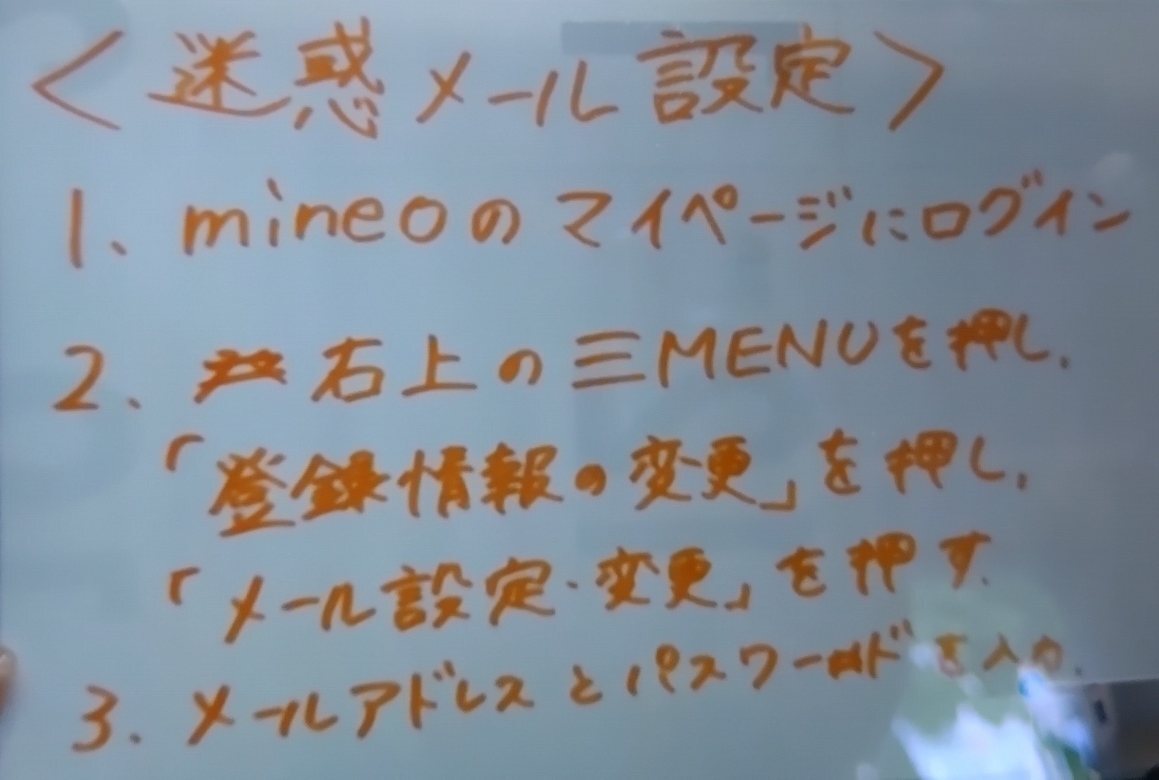 ＜迷惑メール設定＞
1、mineoのマイページにログイン
2、右上の三MENUを押し、
「登録情報の変更」を押し、
「メール設定・変更」を押す。
3、メールアドレスとパスワードを入力。